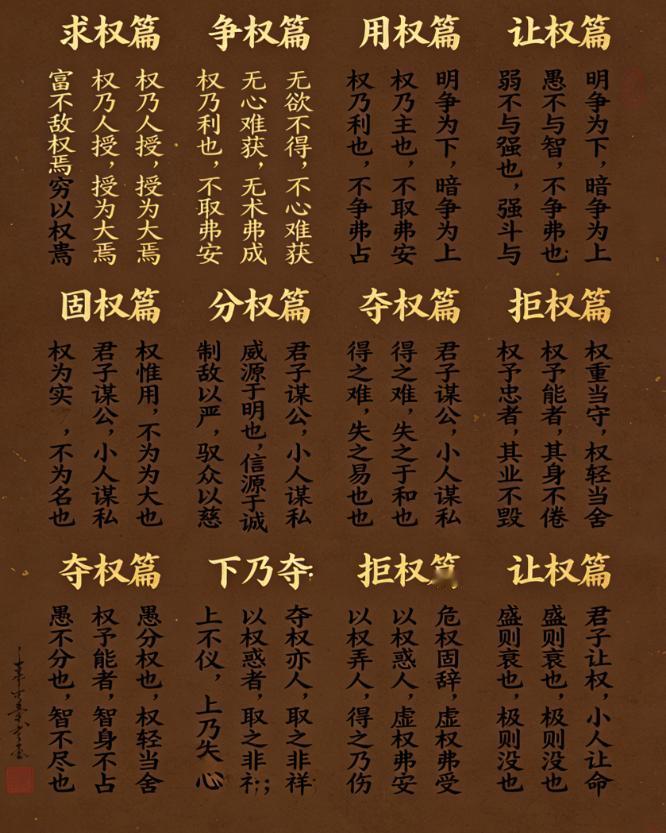 让权篇
明争为下，暗争为上
愚不与智，不争弗也
弱不与强也，强斗与
用权篇
明争为下，暗争为上
权乃主也，不取弗安
权乃利也，不争弗占
争权篇
无欲不得，不心难获
无心难获，无术弗成
权乃利也，不取弗安
求权篇
权乃人授，授为大焉
权乃人授，授为大焉
富不敌权焉穷以权焉
拒权篇
权重当守，权轻当舍
权予能者，其身不倦
权予忠者，其业不毁
夺权篇
君子谋公，小人谋私
得之难，失之于和也
得之难，失之易也也
分权篇
君子谋公，小人谋私
威源于明也，信源于诚
制敌以严，驭众以慈
固权篇
权惟用，不为为大也
君子谋公，小人谋私
权为实，不为名也
让权篇
君子让权，小人让命
盛则衰也，极则没也
盛则衰也，极则没也
拒权
危权固辞，虚权弗受
以权惑人，虚权弗安
以权弄人，得之乃伤
下乃夺
夺权亦人，取之非祥
以权惑者，取之非
上不仪，上乃失心
夺权篇
愚分权也，权轻当舍
权予能者，智身不占
愚不分也，智不尽也